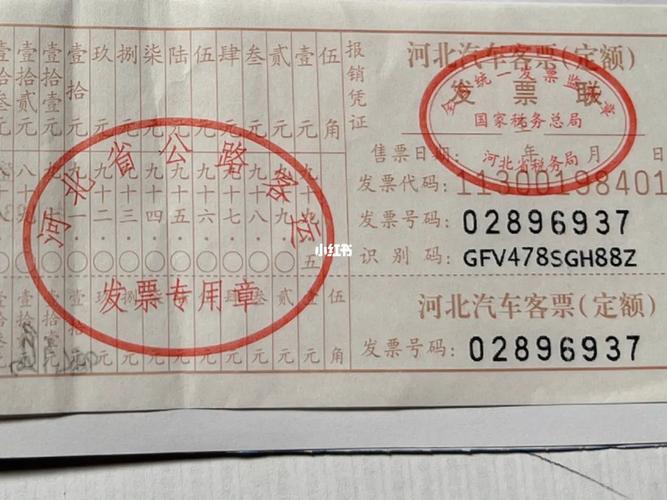 壹拾贰元
壹拾壹元
壹拾元
玖元
捌元
柒元
陆元
伍元
肆元
叁元
贰元
壹元
伍角
报销凭证
河北汽车客票(定额)
发票联
全国统一发票监制章
国家税务总局
河北省税务局
售票日期: 年 月 日
发票代码: 11300198401
发票号码: 02896937
识别码: GFV478SGH88Z
河北汽车客票(定额)
发票号码: 02896937
河北省公路客运
发票专用章
小红书
九十一.
九十二.
九十三.
九十四.
九十五.
九十六.
九十七.
九十八.
九十九.
壹拾元
玖元
捌元
柒元
陆元
伍元
肆元
叁元
贰元
壹元
伍角